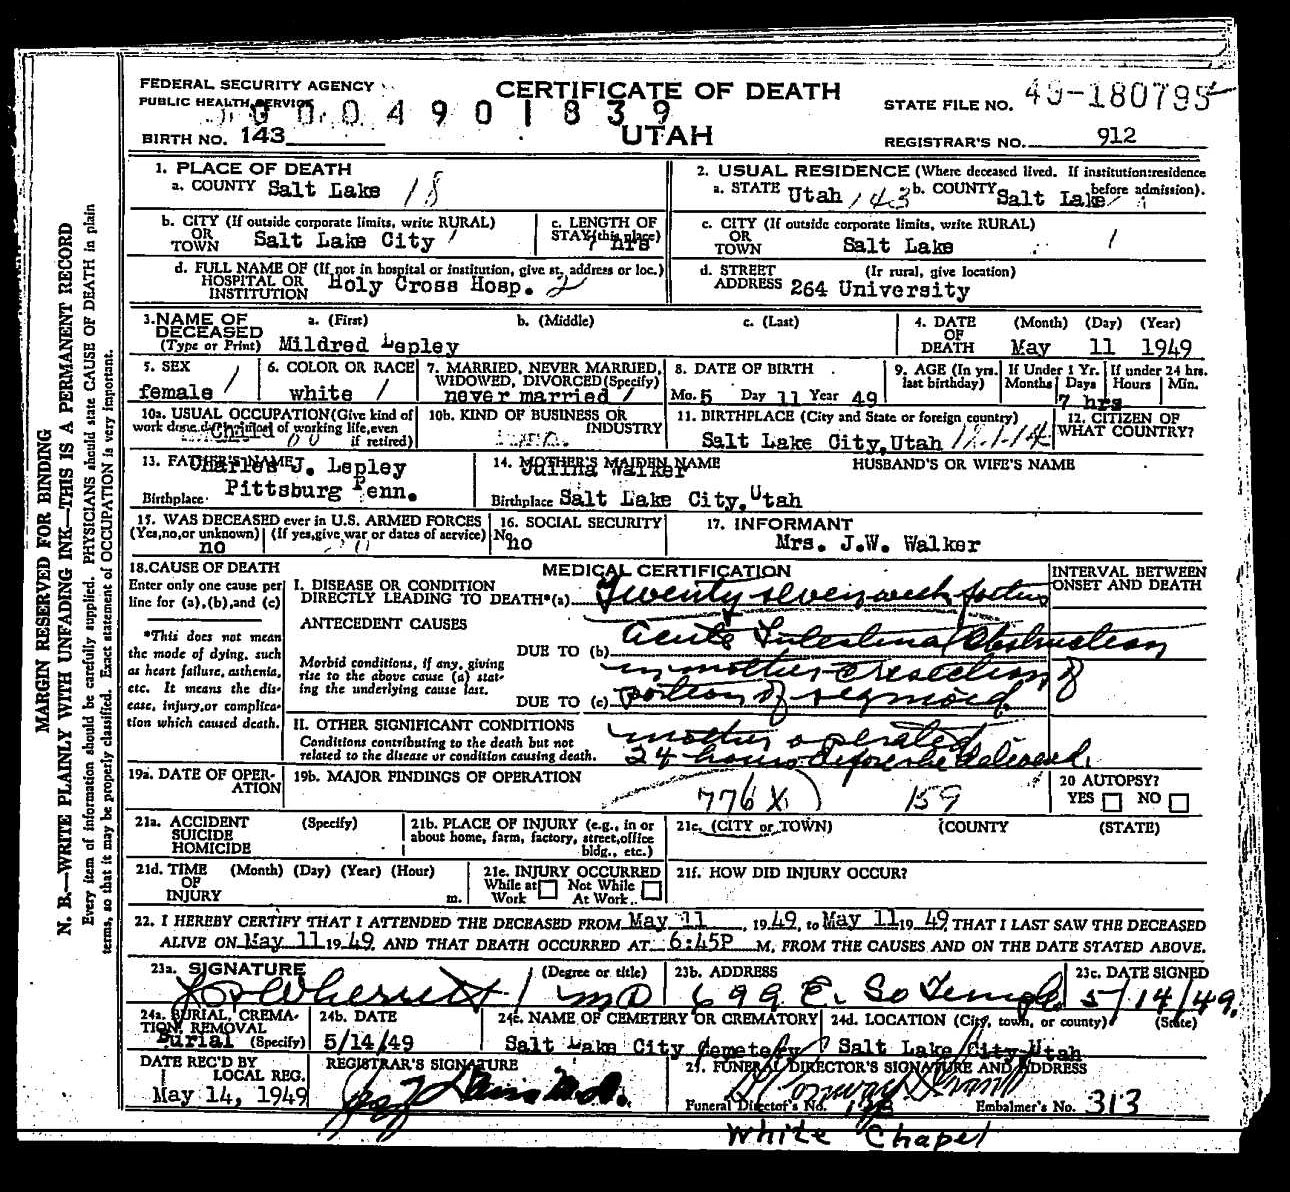 FEDERAL SECURITY AGENCY
PUBLIC HEALTH SERVICE
CERTIFICATE OF DEATH
UTAH
STATE FILE NO. 49-180795
0 0 4 9 0 1 8 3 9
BIRTH NO. 143
REGISTRAR'S NO. 912
1. PLACE OF DEATH
a. COUNTY Salt Lake 18
2. USUAL RESIDENCE (Where deceased lived. If institution:residence before admission).
a. STATE Utah 143 b. COUNTY Salt Lake
b. CITY (If outside corporate limits, write RURAL)
OR
TOWN Salt Lake City
c. LENGTH OF
STAY (this place)
7 hrs
c. CITY (If outside corporate limits, write RURAL)
OR
TOWN Salt Lake 1
d. FULL NAME OF (If not in hospital or institution, give st. address or loc.)
HOSPITAL OR
INSTITUTION Holy Cross Hosp. 2
d. STREET (If rural, give location)
ADDRESS 264 University
3. NAME OF
DECEASED
(Type or Print)
a. (First) b. (Middle) c. (Last)
Mildred Lepley
4. DATE
OF
DEATH
(Month) (Day) (Year)
May 11 1949
5. SEX
female /
6. COLOR OR RACE
white /
7. MARRIED, NEVER MARRIED,
WIDOWED, DIVORCED (Specify)
never married /
8. DATE OF BIRTH
Mo. 5 Day 11 Year 49
9. AGE (In yrs.
last birthday)
If Under 1 Yr.
Months Days
If under 24 hrs.
Hours Min.
7 hrs
10a. USUAL OCCUPATION (Give kind of
work done during most of working life, even
if retired)
Child 00
10b. KIND OF BUSINESS OR
INDUSTRY
11. BIRTHPLACE (City and State or foreign country)
Salt Lake City, Utah
12. CITIZEN OF
WHAT COUNTRY?
13. FATHER'S NAME
Charles J. Lepley
Birthplace Pittsburg Penn.
14. MOTHER'S MAIDEN NAME
Walker
Birthplace Salt Lake City, Utah
HUSBAND'S OR WIFE'S NAME
15. WAS DECEASED ever in U.S. ARMED FORCES
(Yes,no,or unknown) (If yes,give war or dates of service)
no
16. SOCIAL SECURITY
No.
no
17. INFORMANT
Mrs. J.W. Walker
18. CAUSE OF DEATH
Enter only one cause per
line for (a),(b),and (c)
*This does not mean
the mode of dying, such
as heart failure, asthenia,
etc. It means the dis-
ease, injury,or complica-
tion which caused death.
MEDICAL CERTIFICATION
INTERVAL BETWEEN
ONSET AND DEATH
I. DISEASE OR CONDITION
DIRECTLY LEADING TO DEATH*(a) Twenty seven week foetus
ANTECEDENT CAUSES
DUE TO (b) Acute Intestinal Obstruction
Morbid conditions, if any, giving
rise to the above cause (a) stat-
ing the underlying cause last.
in mother c resection of
DUE TO (c) portion of sigmoid.
II. OTHER SIGNIFICANT CONDITIONS
Conditions contributing to the death but not
related to the disease or condition causing death.
mother operated
24 hours before she delivered.
19a. DATE OF OPER-
ATION
19b. MAJOR FINDINGS OF OPERATION
776 X 159
20 AUTOPSY?
YES NO
21a. ACCIDENT
SUICIDE
HOMICIDE
(Specify)
21b. PLACE OF INJURY (e.g., in or
about home, farm, factory, street,office
bldg., etc.)
21c. (CITY or TOWN) (COUNTY) (STATE)
21d. TIME
OF
INJURY
(Month) (Day) (Year) (Hour)
m.
21e. INJURY OCCURRED
While at
Work
Not While
At Work
21f. HOW DID INJURY OCCUR?
22. I HEREBY CERTIFY THAT I ATTENDED THE DECEASED FROM May 11, 1949, to May 11 1949, THAT I LAST SAW THE DECEASED
ALIVE ON May 11 1949 AND THAT DEATH OCCURRED AT 6:45P M, FROM THE CAUSES AND ON THE DATE STATED ABOVE.
23a. SIGNATURE (Degree or title)
MD
23b. ADDRESS
699 E. So Temple
23c. DATE SIGNED
5/14/49.
24a. BURIAL, CREMA-
TION, REMOVAL
(Specify)
Burial
24b. DATE
5/14/49
24c. NAME OF CEMETERY OR CREMATORY
Salt Lake City Cemetery
24d. LOCATION (City, town, or county) (State)
Salt Lake City Utah
DATE REC'D BY
LOCAL REG.
May 14, 1949
REGISTRAR'S SIGNATURE
25. FUNERAL DIRECTOR'S SIGNATURE AND ADDRESS
Funeral Director's No. Embalmer's No. 313
White Chapel
MARGIN RESERVED FOR BINDING
N. B.—WRITE PLAINLY WITH UNFADING INK—THIS IS A PERMANENT RECORD
Every item of information should be carefully supplied. PHYSICIANS should state CAUSE OF DEATH in plain
terms, so that it may be properly classified. Exact statement of OCCUPATION is very important.